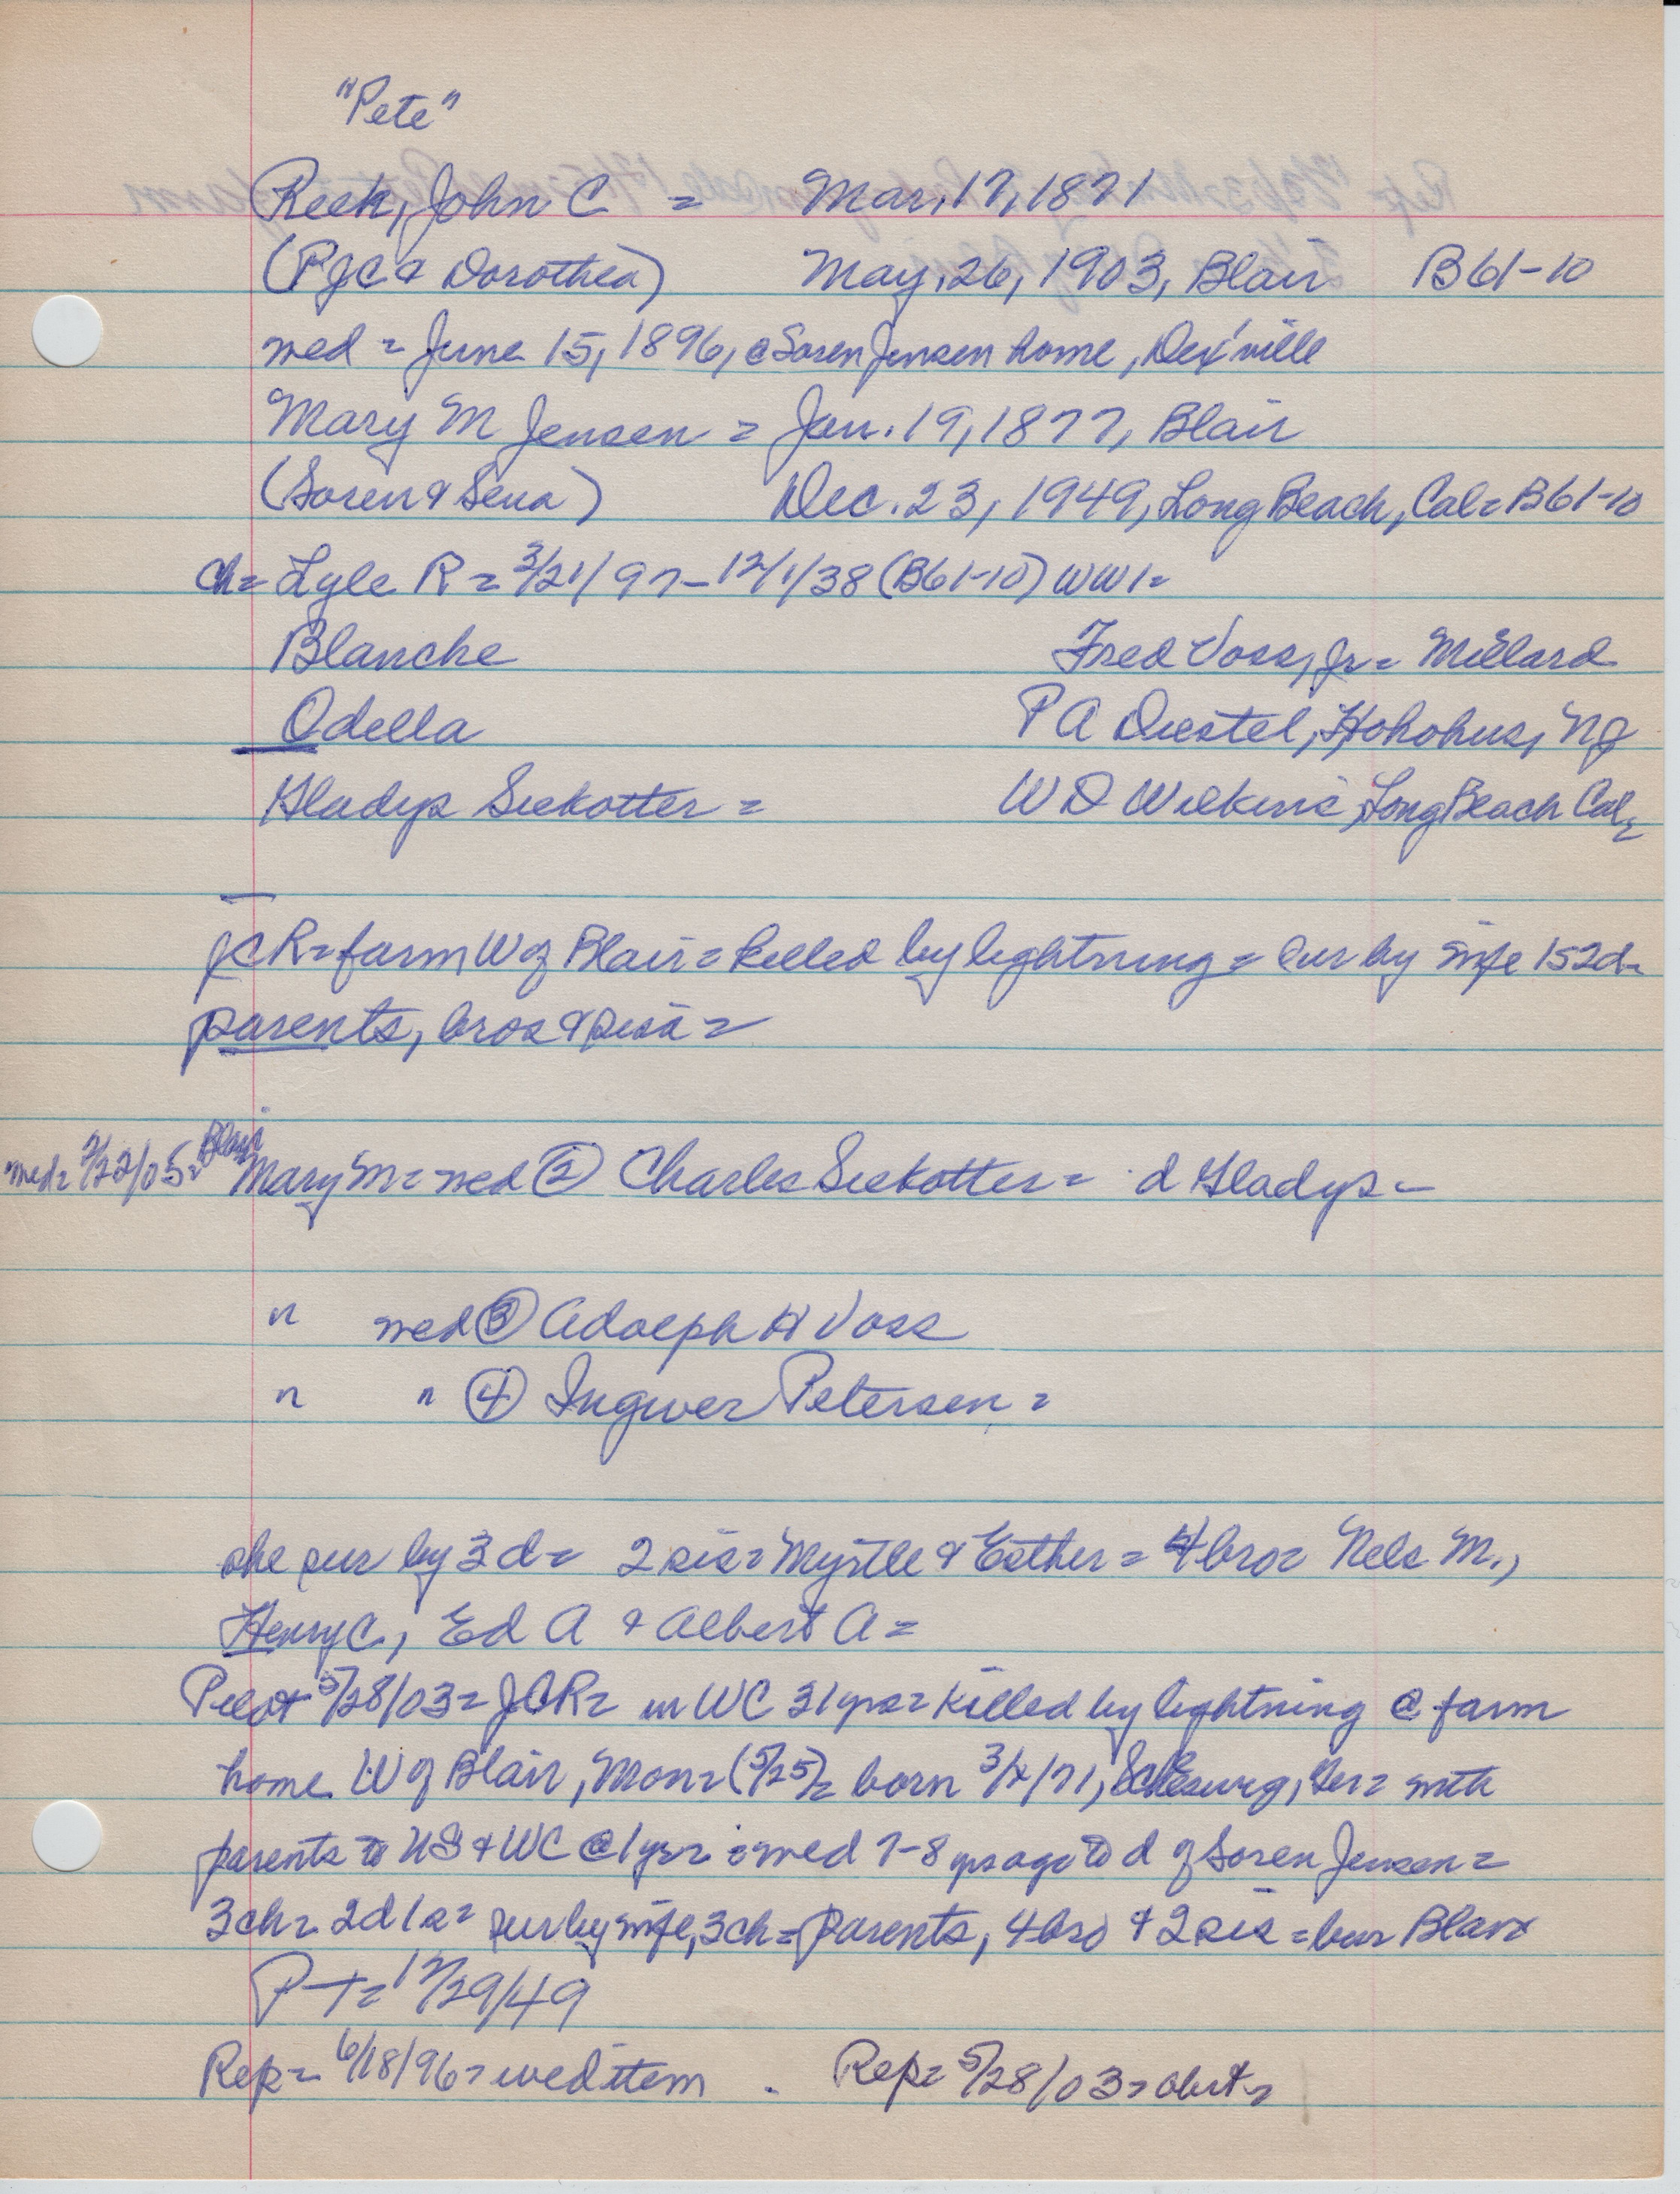 "Pete"
Reeh, John C = Mar. 17, 1871
(PJC & Dorothea) May. 26, 1903, Blair B61-10
med = June 15, 1896, @ Soren Jensen home, Dex'ville
Mary M Jensen = Jan. 19, 1877, Blair
(Soren & Sena) Dec. 23, 1949, Long Beach, Cal = B61-10
Ch = Lyle R = 3/21/97 - 12/1/38 (B61-10) WW1 =
Blanche Fred Voss, Jr = Millard
Odella P A Diestel, Hohohus, NJ
Gladys Siekotter = W D Wilkins, Long Beach Cal =
JCR = farm W of Blair = killed by lightning = sur by wife 1s 2d =
parents, bros & sis =
med = 7/22/05 = Blair Mary M = med (2) Charles Siekotter = d Gladys -
" med (3) Adolph H Voss
" " (4) Ingwer Petersen =
she sur by 3 d = 2 sis = Myrtle & Esther = 4 bro = Nels M.,
Henry C., Ed A & Albert A =
Pilot 5/28/03 = JCR = in WC 31 yrs = killed by lightning @ farm
home W of Blair, Mon = (5/25) = born 3/ /71, Ger = with
parents to US & WC @ 1 yr = med 7-8 yrs ago to d of Soren Jensen =
3 ch = 2d 1s = sur by wife, 3 ch = parents, 4 bro & 2 sis = bur Blair
P-T = 12/29/49
Rep = 6/18/96 = wed item . Rep = 5/28/03 = obit =